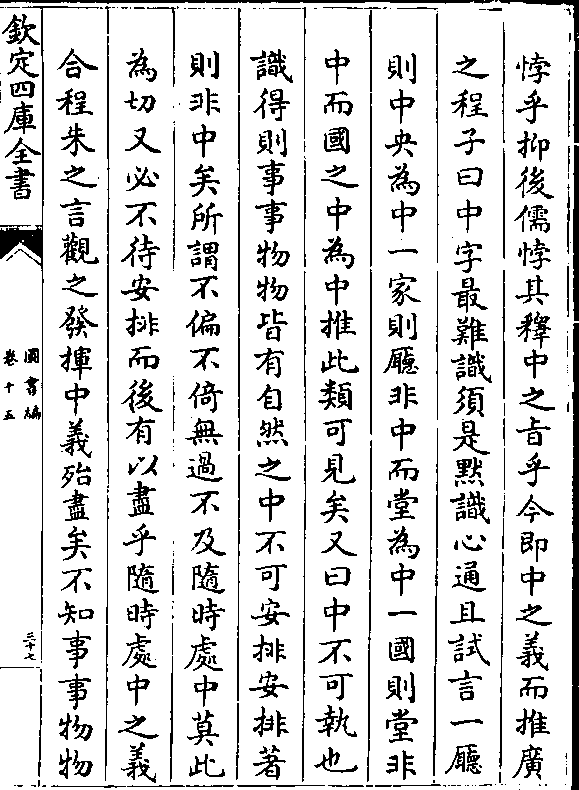 悖乎抑後儒悖其釋中之旨乎今即中之義而推廣
之程子曰中字最難識須是黙識心通且試言一廳
則中央為中一家則廳非中而堂為中一國則堂非
中而國之中為中推此類可見矣又曰中不可執也
識得則事事物物皆有自然之中不可安排安排著
則非中矣所謂不偏不倚無過不及隨時處中莫此
為切又必不待安排而後有以盡乎隨時處中之義
合程朱之言觀之發揮中義殆盡矣不知事事物物
欽定四庫全書
圖書編
卷十五
三十七